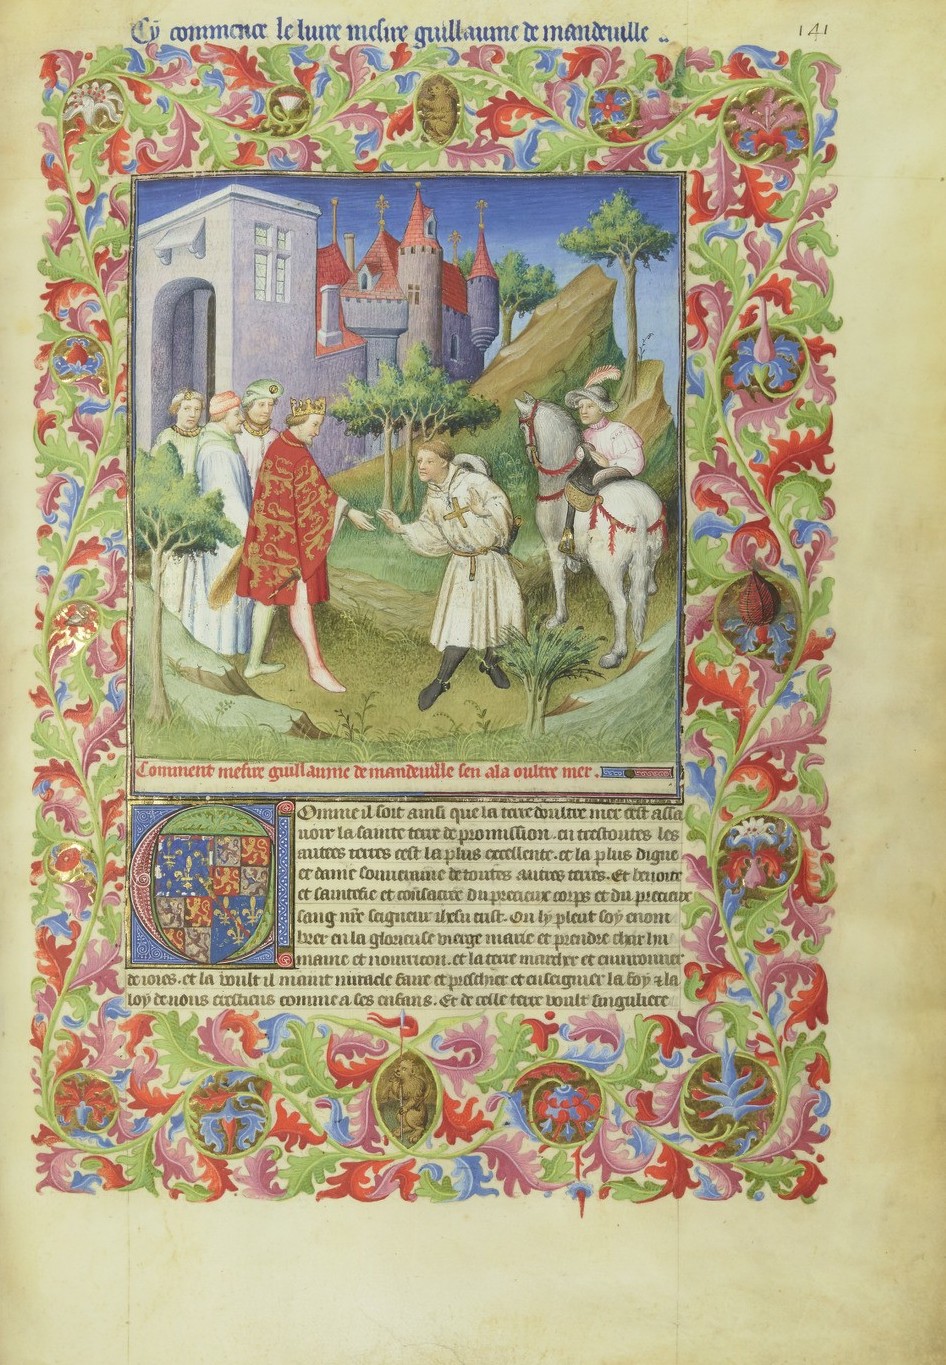 Cy commence le livre messire guillaume de mandeville ..
141
Comment messire guillaume de mandeville sen ala oultre mer .
Comme il soit ainsi que la terre doultre mer cest assa
uoir la sainte terre de promission . en trestoutes les
autres terres cest la plus excellente . et la plus digne
et dame souueraine de toutes autres terres . Et benoite
et saintefie et consacree du precieux corps et du precieux
sang nre seigneur ihesu crist . Ou ly pleut soy enom
brer en la glorieuse vierge marie et prendre char hu
maine et nourricon . et la terre marchier et enuironner
de ioies . et la voult il maint miracle faire et preschier et enseignier la foy et la
loy de nous crestiens comme a ses enfans . Et de celle terre voult singuliere